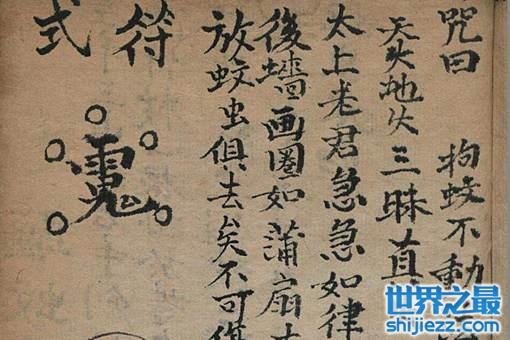 咒曰 拘蚊不動
天火地火三昧真
太上老君急急如律
後墻画圈如蒲扇
放蚊虫俱去矣不可
符式
世界之最
shijiezz.com